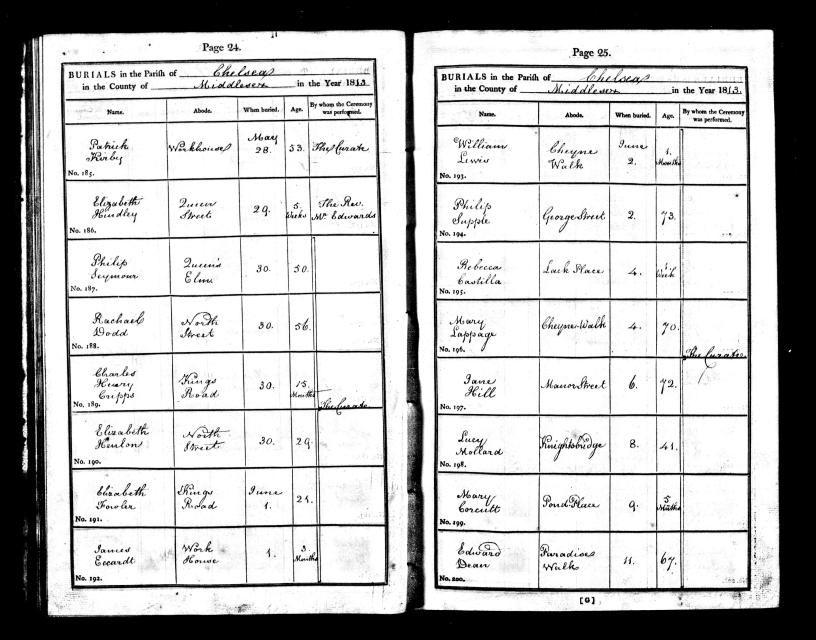 Page 24.
BURIALS in the Parish of Chelsea
in the County of Middlesex in the Year 1813.
Name. Abode. When buried. Age. By whom the Ceremony was performed.
Patrick Workhouse May 33. The Curate
Kirby 28.
No. 185.
Elizabeth Queen 29. 5. The Rev.
Hindley Street Weeks Mr. Edwards
No. 186.
Philip Queen's 30. 50.
Seymour Elm
No. 187.
Rachael North 30. 56.
Dodd Street
No. 188.
Charles
Henry Kings 30. 15.
Cripps Road Months
No. 189. The Curate
Elizabeth North 30. 29.
Street
No. 190.
Elizabeth Kings June 21.
Fowler Road 1.
No. 191.
James Work 1. 3.
Eccardt House Months
No. 192.
Page 25.
BURIALS in the Parish of Chelsea
in the County of Middlesex in the Year 1813.
Name. Abode. When buried. Age. By whom the Ceremony was performed.
William Cheyne June
Lewis Walk 2. Months
No. 193.
Philip George Street 2. 73.
Supple
No. 194.
Rebecca Lack Place 4. Week
Castilla
No. 195.
Mary Cheyne Walk 4. 70.
Lappage
No. 196. The Curate
Jane Manor Street 6. 72.
Hill
No. 197.
Lucy Knightsbridge 8. 41.
Mollard
No. 198.
Mary Pond Place 9. 5
Corcutt Months
No. 199.
Edward Paradise 11. 67.
Dean Walk
No. 200.
[G]